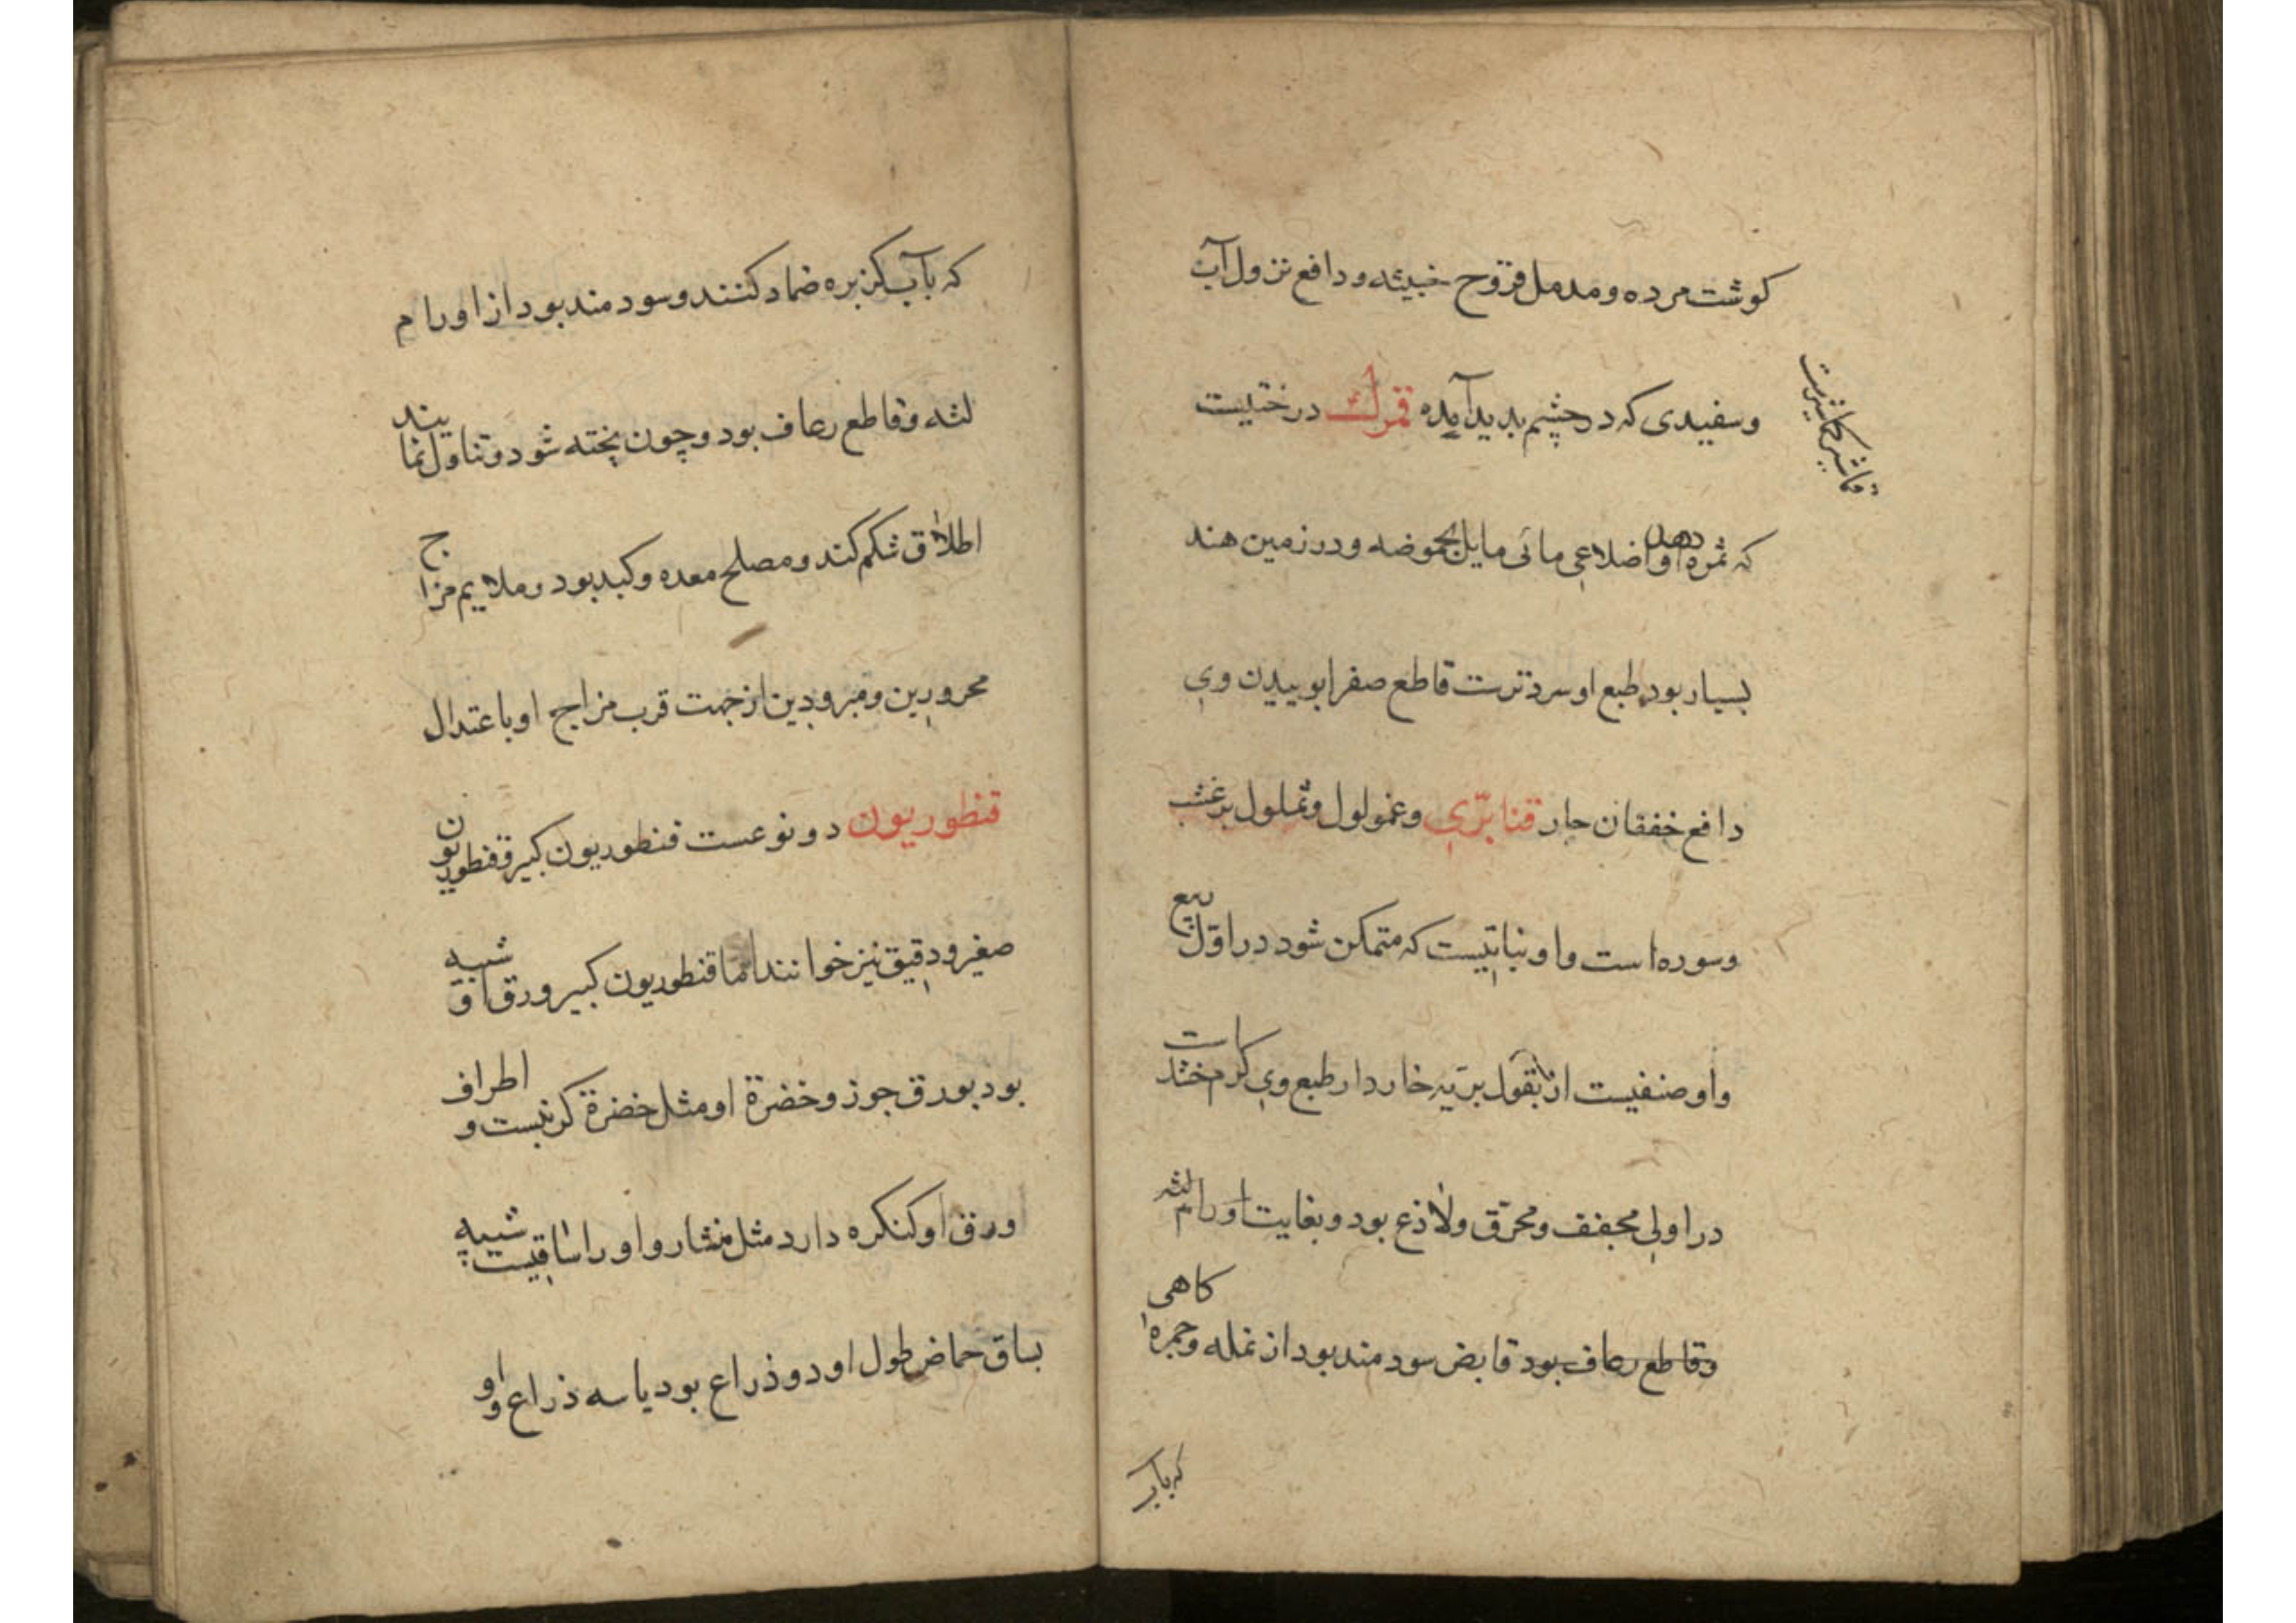 کوشت مرده ومدمل قروح خبیثه ودافع نزول آب
وسفیدی که در چشم بدید آمده قمرك درختیست
که ثمرهٔ او اضلاعی مائی مایل بحموضه ودر زمین هند
بسیار بود طبع او سرد ترست قاطع صفرا بوییدن وی
دافع خفقان حار قنابرّی وغمولول وثملول برغشب
وسوره است واو نباتیست که متمکن شود در اوّل ربیع
واو صنفیست از بقول بریه خاردار طبع وی کرم خشك است
در اولی مجفف ومحرق ولاذع بود وبغایت اورام لثه
وقاطع رعاف بود قابض سودمند بود از نمله وجمره کاهی
که بآب
که بآب کزبره ضماد کنند وسودمند بود از اورام
لثه وقاطع رعاف بود وچون پخته شود وتناول نمایند
اطلاق شکم کند ومصلح معده وکبد بود وملایم مزاج
محرورین ومبرودین از جهت قرب مزاج او باعتدال
قنطوریون دو نوعست قنطوریون کبیر وقنطوریون
صغیر ودقیق نیز خوانند اما قنطوریون کبیر ورق او شبیه
بود بورق جوز وخضرة او مثل خضرة کرنبست و اطراف
ورق او کنکره دارد مثل منشار واو را ساقیست شبیه
بساق حماض طول او دو ذراع بود یا سه ذراع واو